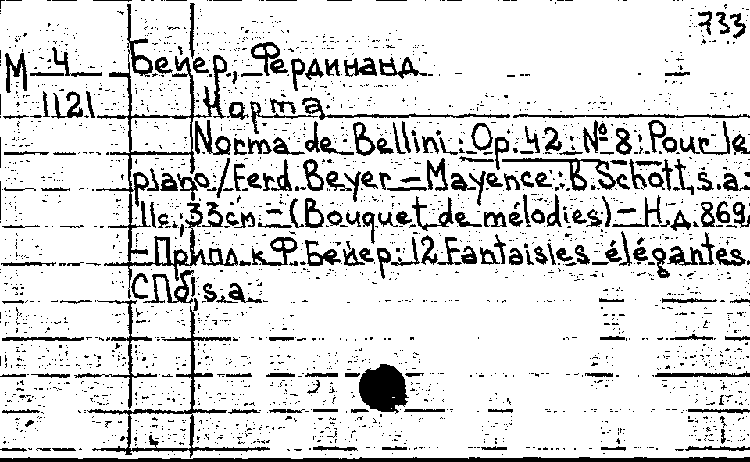 733
М 4 Бейер, Фердинанд
1121 Норма
Norma de Bellini : Op. 42 : № 8 : Pour le
piano / Ferd. Beyer – Mayence : B. Schott, s.a.
11с.; 33см. – (Bouquet de mélodies) – Н.д. 869
– Припл. к Ф. Бейер: 12 Fantaisies élégantes.
СПб, s.a.